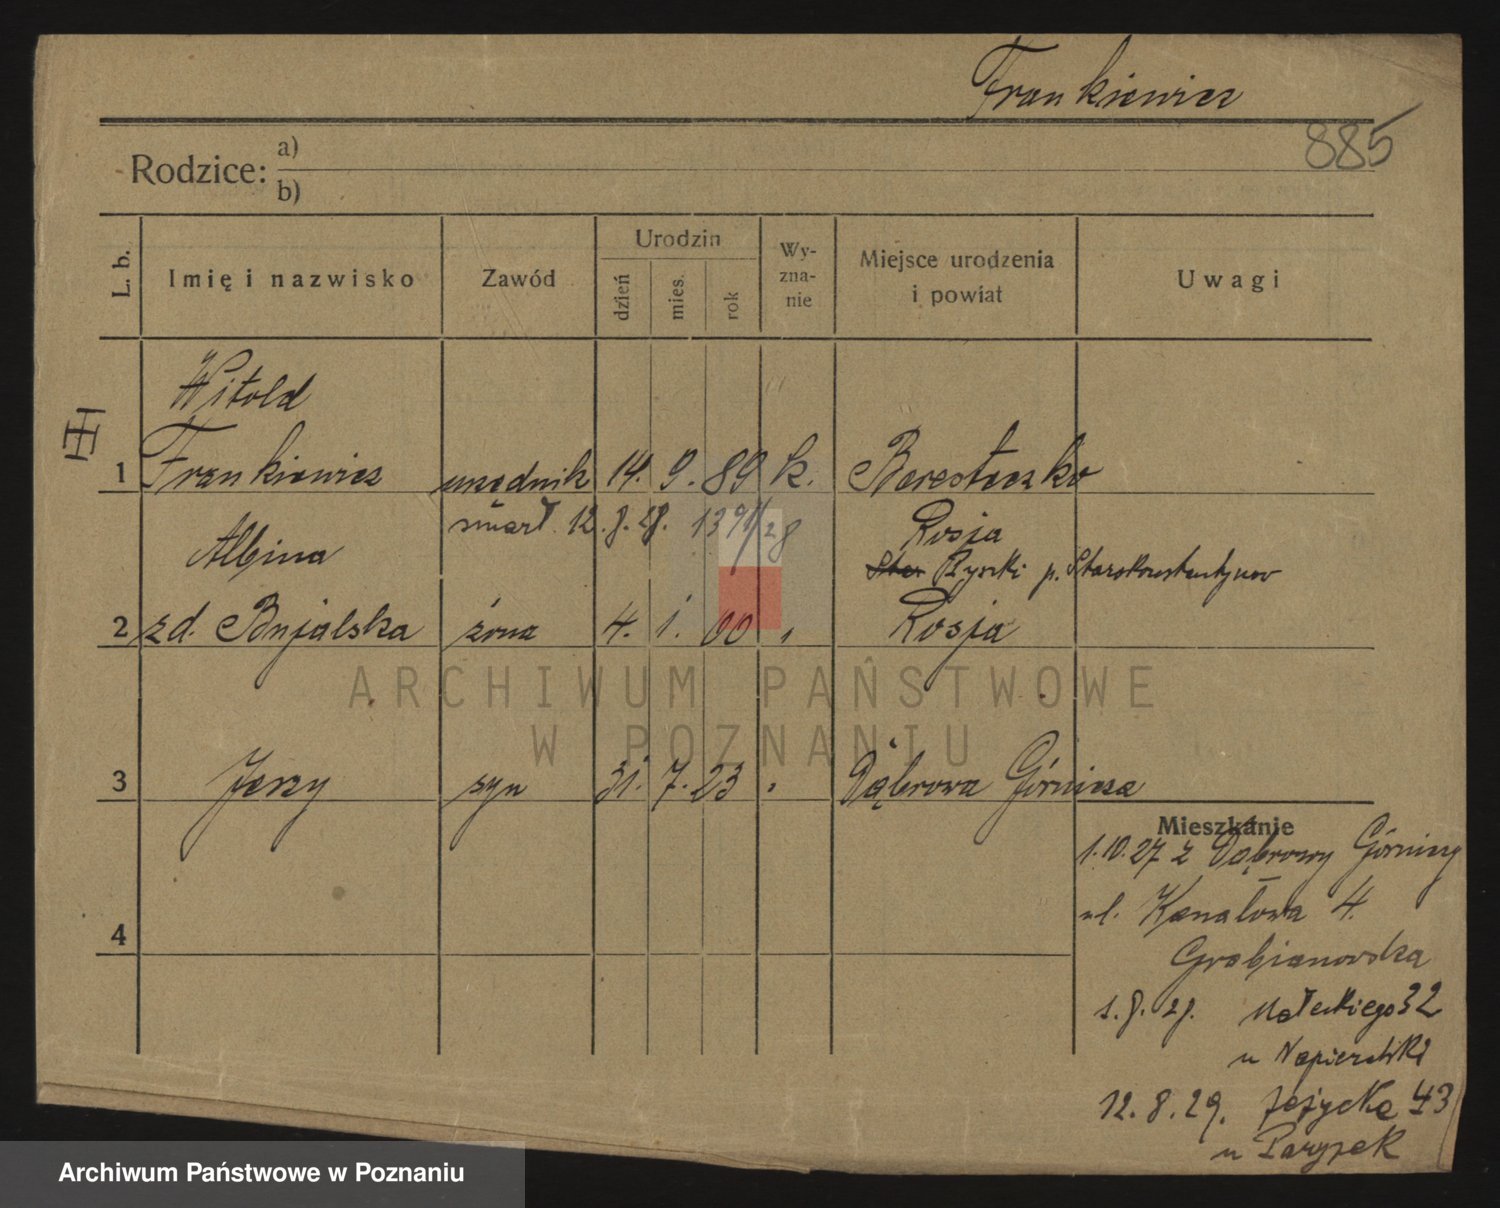 Frankiewicz
885
Rodzice: a)
b)
L. b. Imię i nazwisko Zawód Urodzin dzień mies. rok Wy-zna-nie Miejsce urodzenia i powiat Uwagi
Witold
1 Frankiewicz urzędnik 14. 9. 89 k. Beresteczko
zmarł 12. 8. 28. 1391/28 Rosja
Albina Ryszki p. Starokonstantynov
2 zd. Bujalska żona 4. 1. 00 " Rosja
3 Jerzy syn 31. 7. 23 " Dąbrowa Górnicza
Mieszkanie
1.10.27 z Dąbrowy Górniczy
ul. Kanałowa 4.
4
Grabianowska
1. 8. 28. Małeckiego 32
u Napieralski
12. 8. 29. Jeżycka 43
u
ARCHIWUM PAŃSTWOWE
W POZNANIU
Archiwum Państwowe w Poznaniu